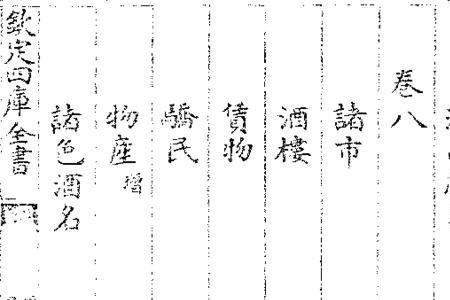 卷八
諸市
酒樓
賃物
驕民
物產增
諸色酒名
欽定四庫全書